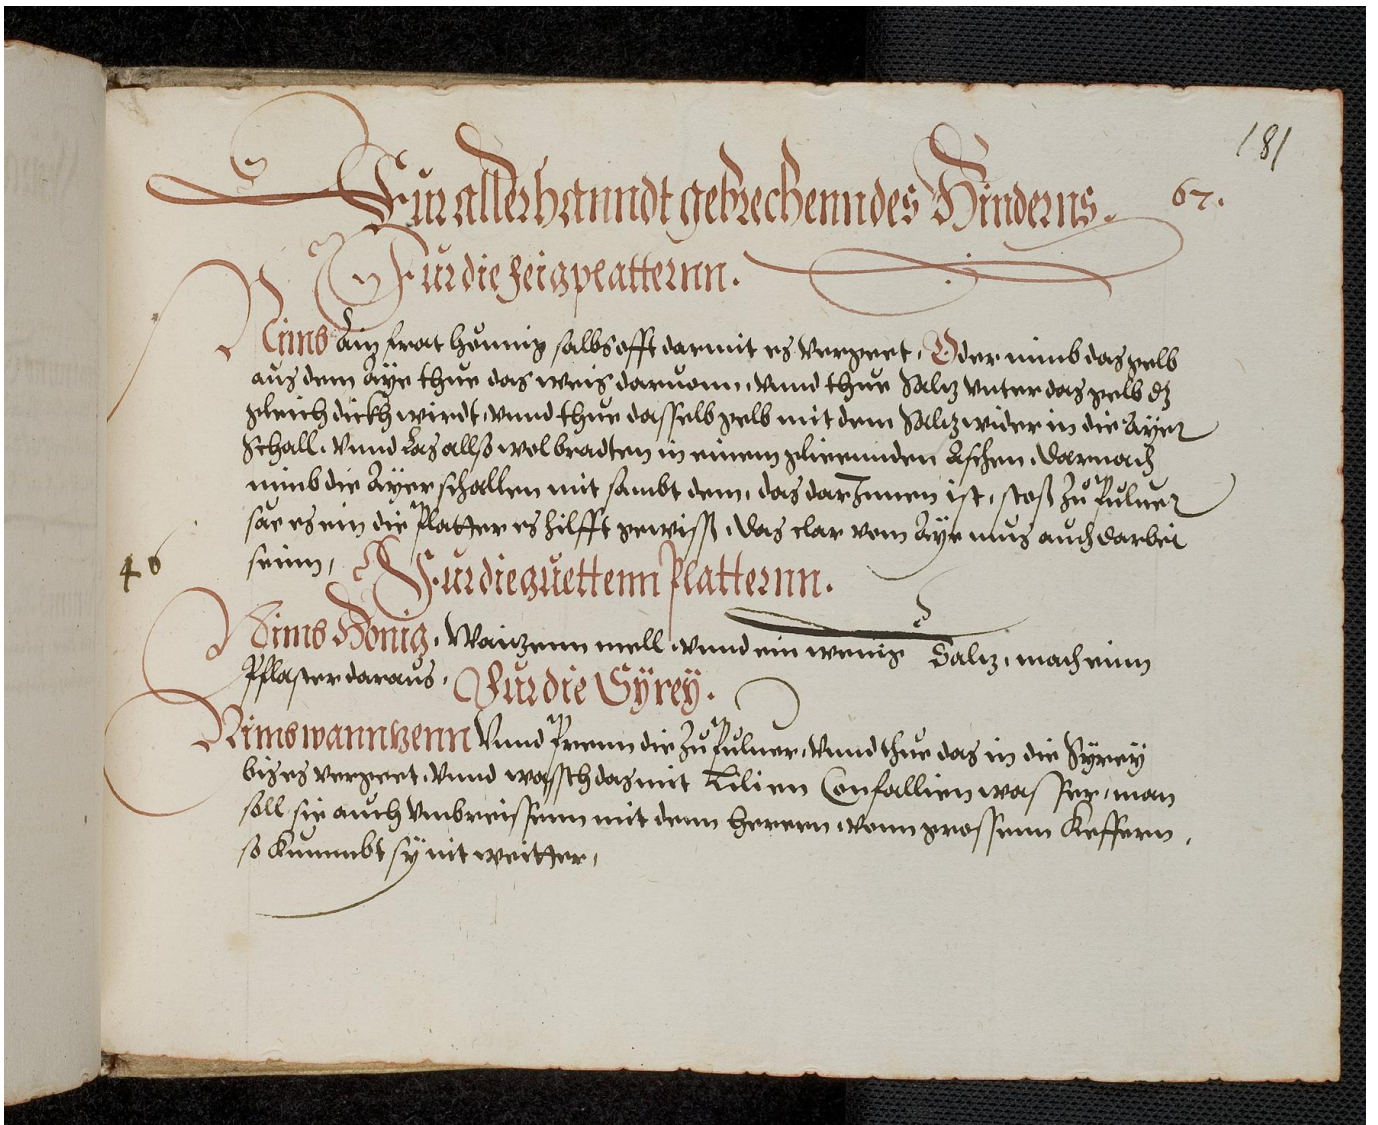 181
Fur allerhanndt gebrechenn des Hinderns. 67.
Fur die feigplatternn.
Nimb Ain frat hönnig salbs offt darmit es vergeet, Oder nimb das gelb
aus dem Aye thue das weis daruonn, vnnd thue Saltz vnter das gelb dz
gleich dickh wirdt, vnnd thue dasselb gelb mit dem Saltz wider in die Ayer
Schall, vnnd Las allso wol bradten in einem glieennden Aschen, darnach
nimb die Ayer schallen mit sambt dem, das dar Innen ist, stoß zu Puluer
säe es ein die Platter es hilfft gewiss, das clar vom Aye mus auch darbei
seinn,
46
Fur die guettenn Platternn.
Nimb Honig, Waitzenn mell, vnnd ein wenig Saltz, mach einn
Pflaster daraus,
Fur die Syrey.
Nimb wanntzenn Vnnd Prenn die zu Puluer, vnnd thue das in die Syrey
bis es vergeet, vnnd wassch das mit Lilien Confallien wasser, man
soll sie auch vmbreissenn mit denn herern, vonn grossenn Keffern,
so Kummbt sy nit weitter,